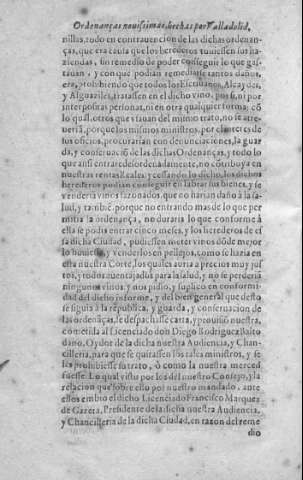 Ordenanças nouissimas, hechas por Valladolid,
nillas, todo en contrauencion de las dichas ordenan
ças, que era causa que los herederos tuuiessen sus ha
ziendas, sin remedio de poder conseguir lo que gas-
tauan, y con que podian remediarse tantos daños,
era, prohibiendo que todos los Escriuanos, Alcaydes,
y Alguaziles, tratassen en el dicho vino, por si, ni por
interpositas personas, ni en otra qualquier forma; cō
lo qual, otros que vsauan del mismo trato, no se atre-
ueriā, porque los mismos ministros, por ser
sus oficios, procurarian con denunciaciones, la guar
da, y conseruaciō de las dichas Ordenanças, y todo lo
que ansi entra desordenadamente, no cōtribuya en
nuestras rentas Reales: y cessando lo dicho, los dichos
herederos podian conseguir en labrar sus bienes, y se
venderia vinos sazonados, que no harian daño a la sa-
lud, y tambiē, porque no entrando mas de lo que per
mitia la ordenança, no duraria lo que conforme à
ella se podia entrar cinco meses, y los herederos de es
sa dicha Ciudad, pudiessen meter vinos dōde mejor
lo huuiesse, y venderlos en pellejos, como se hazia en
esta nuestra Corte, los quales auria a precios muy jus
tos, y todos auentajados para la salud, y no se perderiā
ningunos vinos, y nos pidio, y suplicò en conformi-
dad del dicho informe, y del bien general que desto
se siguia à la republica, y guarda, y conseruacion de
las ordenāças, se despachasse carta, y prouisiō nuestra,
cometida al Licenciado don Diego Rodriguez Balto
dano, Oydor de la dicha nuestra Audiencia, y Chan-
cilleria, para que se quitassen los tales ministros, y se
les prohibiesse su trato, ò como la nuestra merced
fuesse. Lo qual visto por los del nuestro Consejo, y la
relacion que sobre ello por nuestro mandado, ante
ellos embio el dicho Licenciado Francisco Marquez
de Gazeta, Presidente de la dicha nuestra Audiencia,
y Chancilleria de la dicha Ciudad, en razon del reme
dio